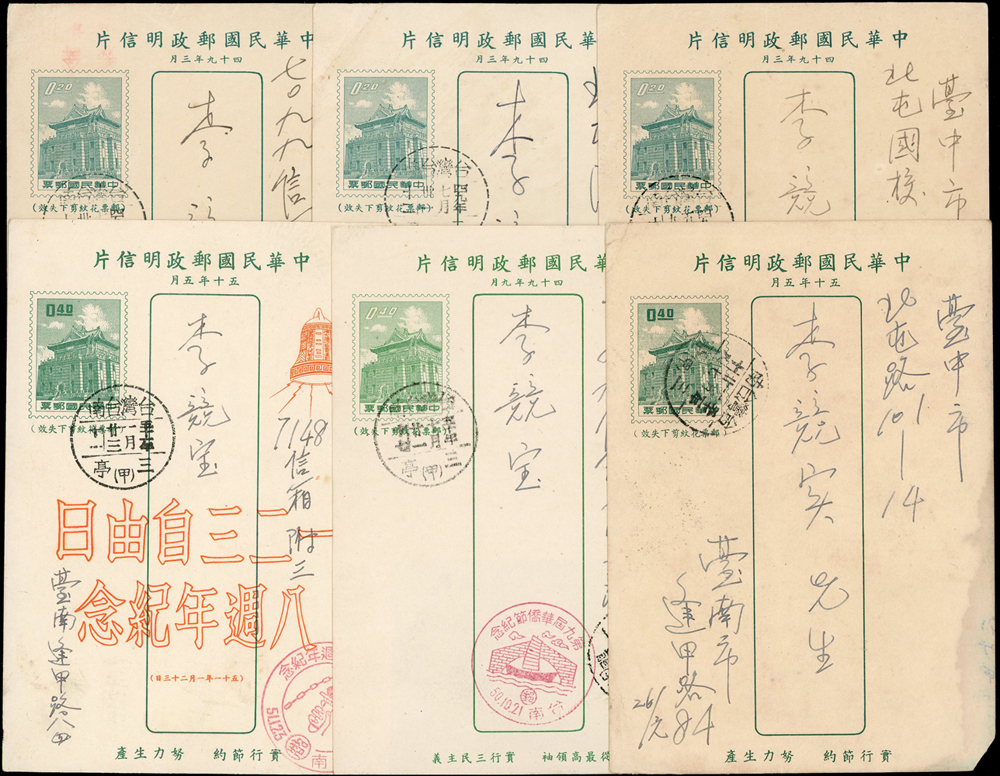 中華民國郵政明信片
四十九年三月
0.20
中華民國郵票
(郵票花紋剪下失效)
李
七〇九九信
中華民國郵政明信片
四十九年三月
0.20
中華民國郵票
(郵票花紋剪下失效)
台灣台
李
中華民國郵政明信片
四十九年三月
0.20
中華民國郵票
(郵票花紋剪下失效)
臺中市
北屯國校
李競
中華民國郵政明信片
五十年五月
0.40
中華民國郵票
(郵票花紋剪下失效)
台灣台南
亭(甲)
7148信箱附三
李競宝
一二三自由日
八週年紀念
(五十一年一月二十三日)
週年紀念
51.1.23
南
臺南逢甲路
實行節約 努力生產
中華民國郵政明信片
四十九年九月
0.40
中華民國郵票
(郵票花紋剪下失效)
亭(甲)
李競宝
第九屆華僑節紀念
50.10.21
台南
從最高領袖 實行三民主義
中華民國郵政明信片
五十年五月
0.40
中華民國郵票
(郵票花紋剪下失效)
臺中市
北屯路101
14
李競实先生
臺南市
逢甲路84
26/1
實行節約 努力生產